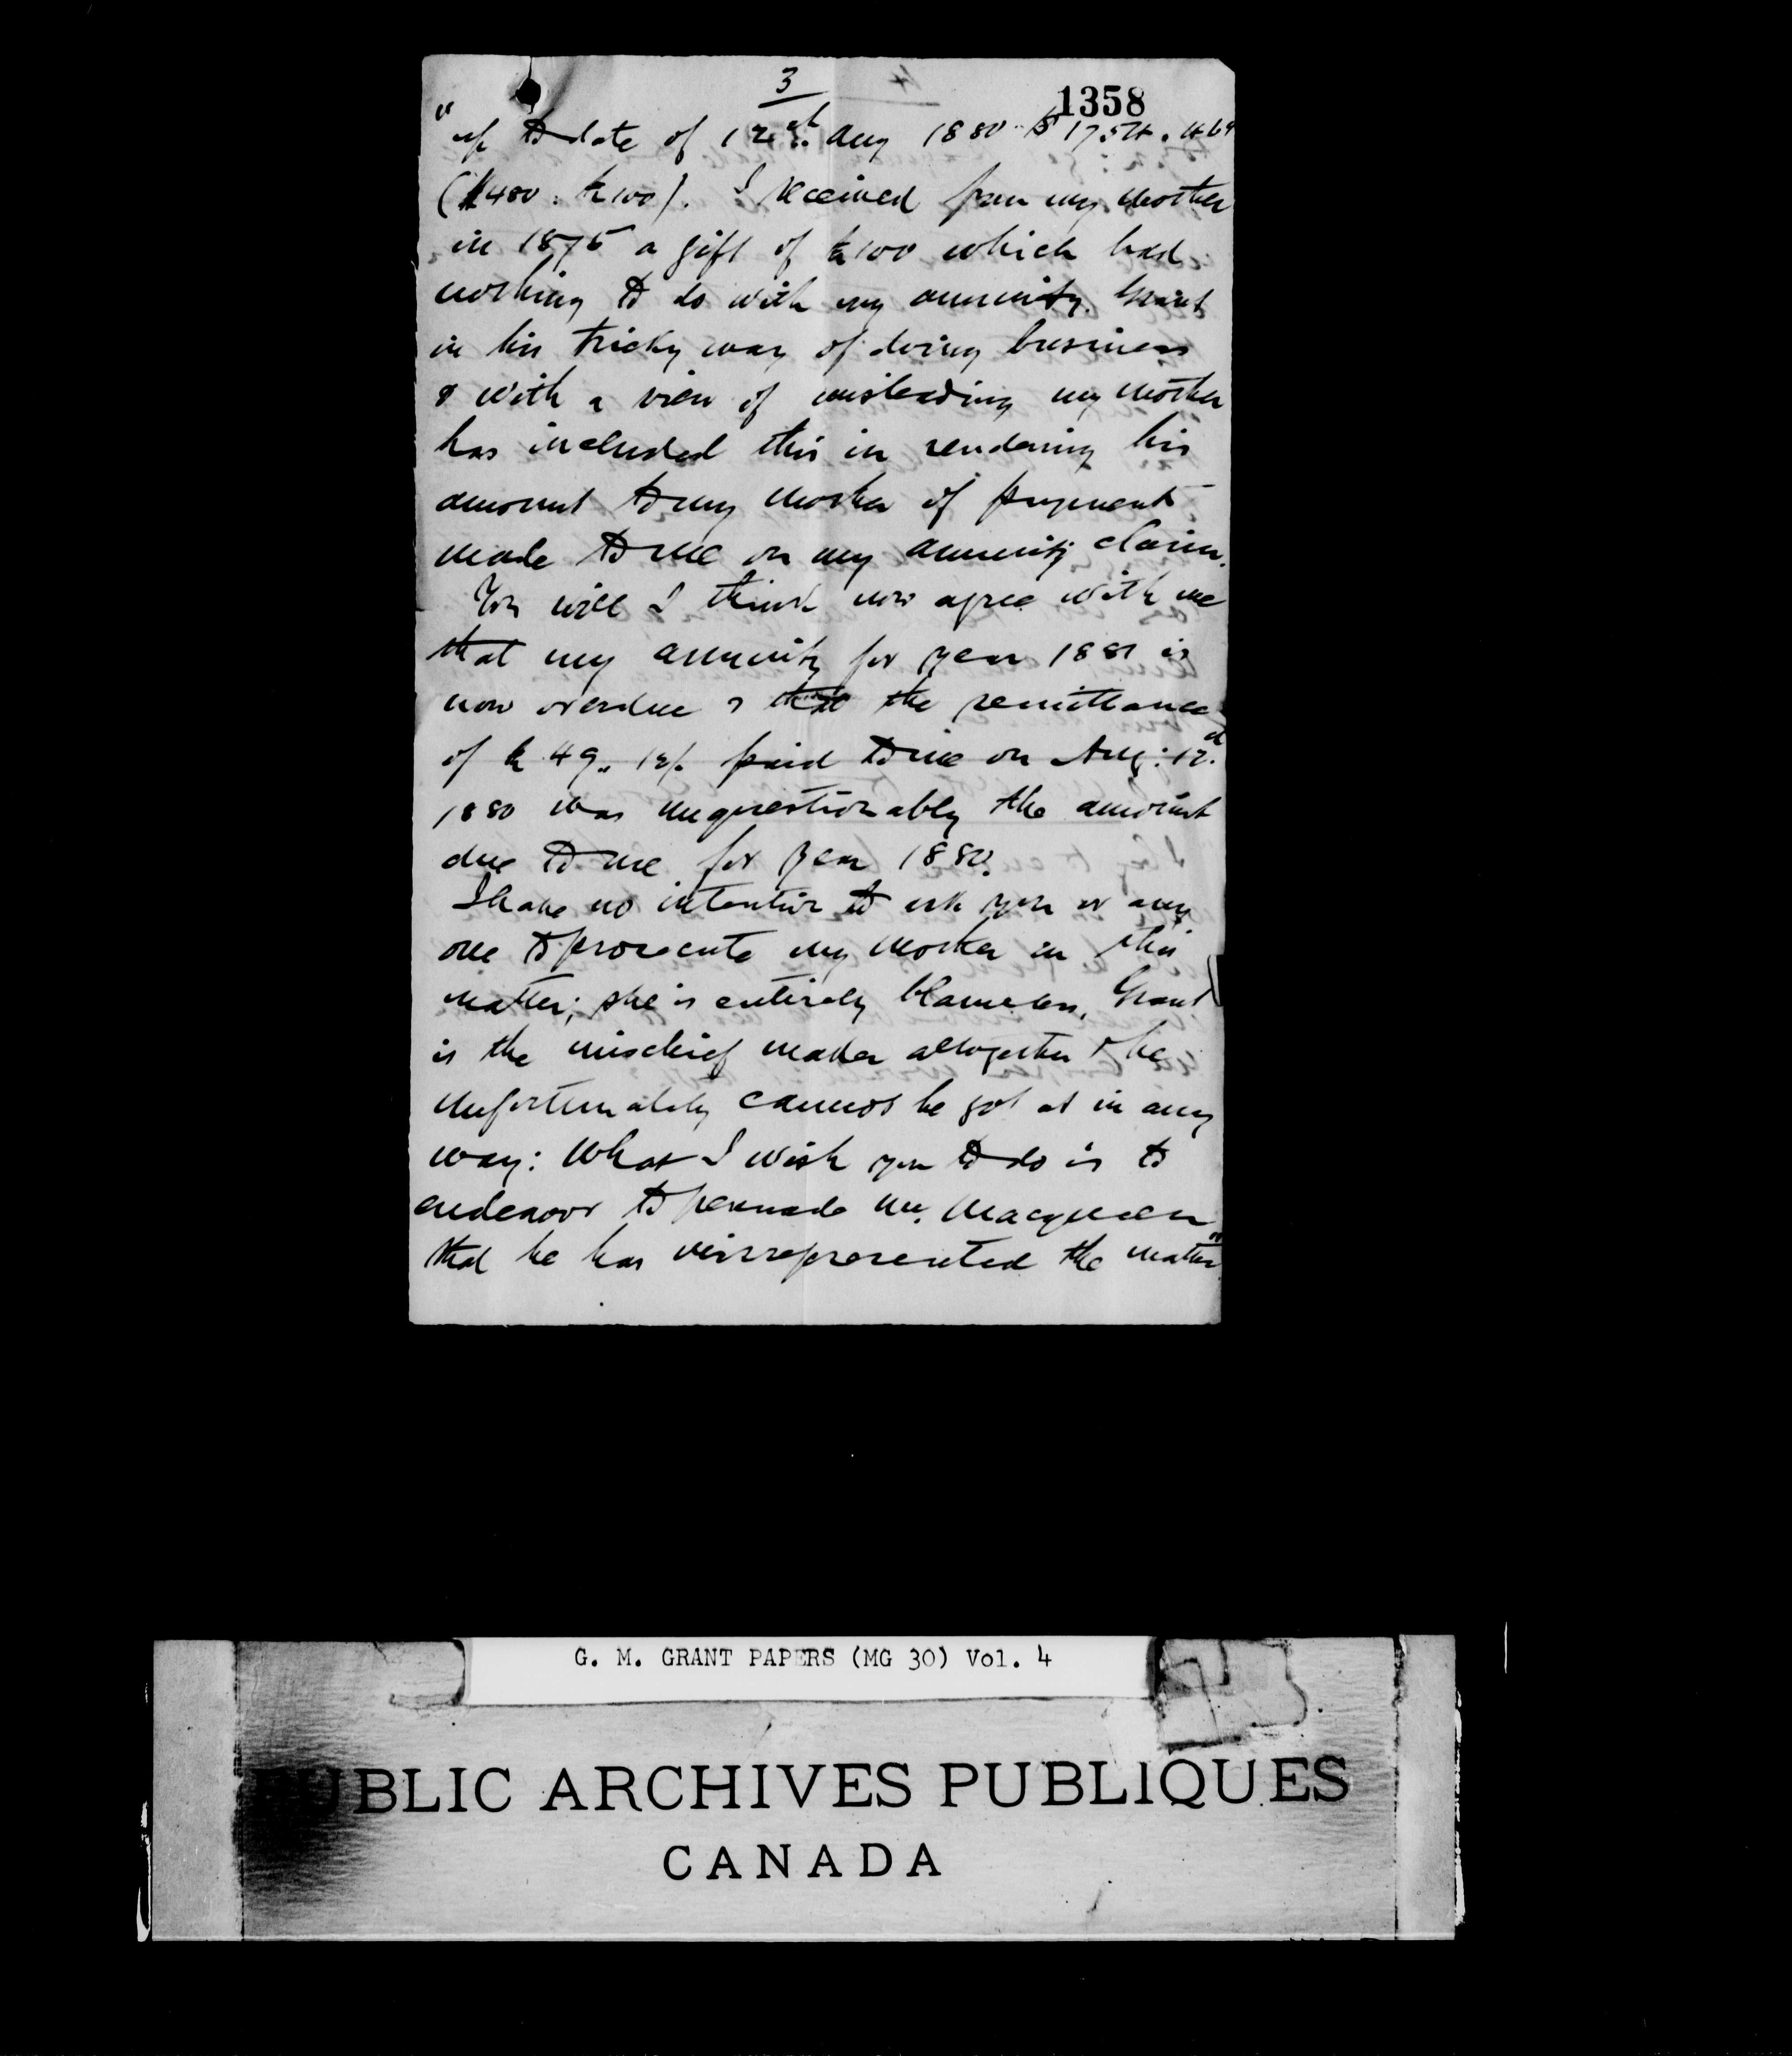 3
1358
" up to date of 12th. Aug 1880
($480 : £100). I received from my Mother
in 1875 a gift of £100 which had
nothing to do with my annuity. Grant
in his tricky way of doing business
& with a view of misleading my Mother
has included this in rendering his
amount to my Mother of payments
made to me on my annuity claim.
You will I think now agree with me
that my annuity for year 1881 is
now overdue & the remittance
of £49.. 12/. paid to me on Aug: 12.
1880 was unquestionably the amount
due to me for year 1880.
I have no intention to ask you or any
one to prosecute my Mother in this
matter; she is entirely blameless, Grant
is the mischief maker altogether & he
unfortunately cannot be got at in any
way: What I wish you to do is to
endeavor to persuade Mr. Macqueen
that he has misrepresented the matter
G. M. GRANT PAPERS (MG 30) Vol. 4
PUBLIC ARCHIVES PUBLIQUES
CANADA